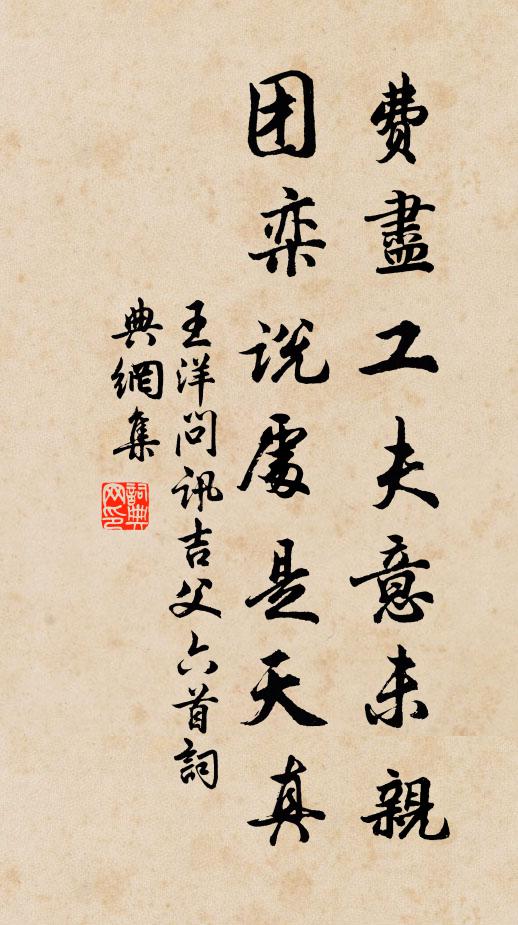 費盡工夫意未親
团栾説處是天真
王洋問訊吉父六首詞
典網集
詞典网印